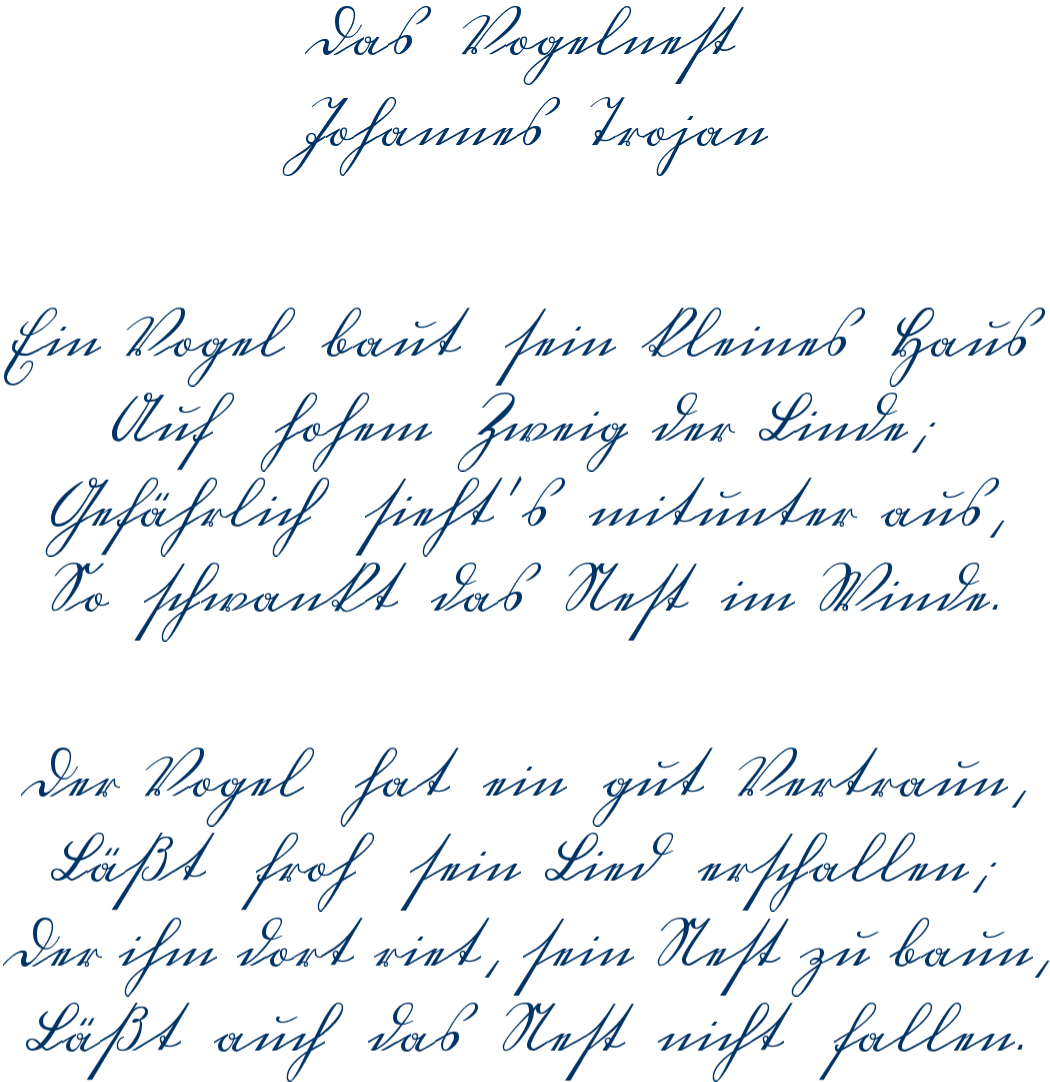 Das Vogelnest
Johannes Trojan
Ein Vogel baut sein kleines Haus
Auf hohem Zweig der Linde;
Gefährlich sieht's mitunter aus,
So schwankt das Nest im Winde.
Der Vogel hat ein gut Vertraun,
Läßt froh sein Lied erschallen;
Der ihm dort riet, sein Nest zu baun,
Läßt auch das Nest nicht fallen.